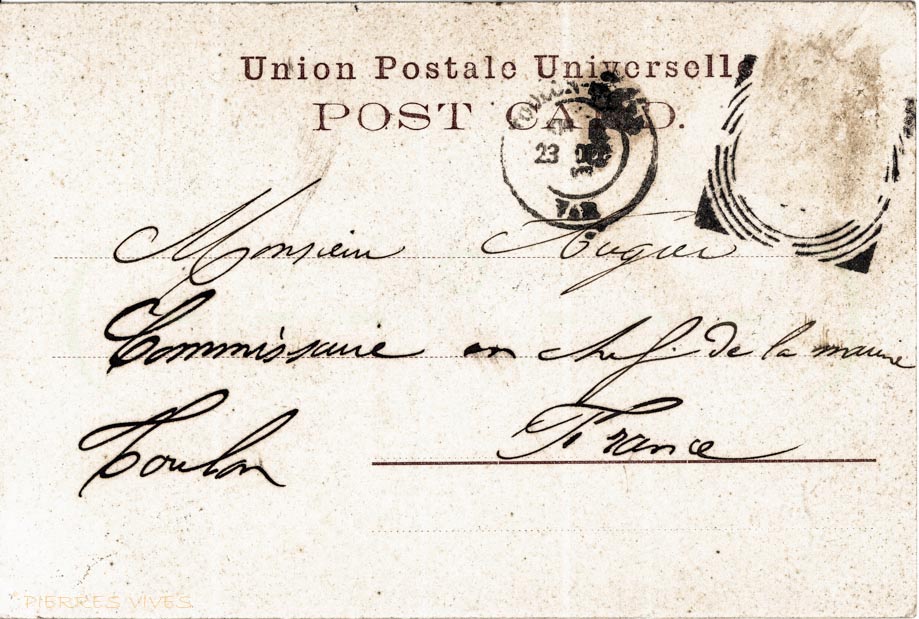 Union Postale Universelle
POST CARD.
TOULON
23 DEC
VAR
Monsieur Augier
Commissaire en chef. de la marine
Toulon France
PIERRES VIVES